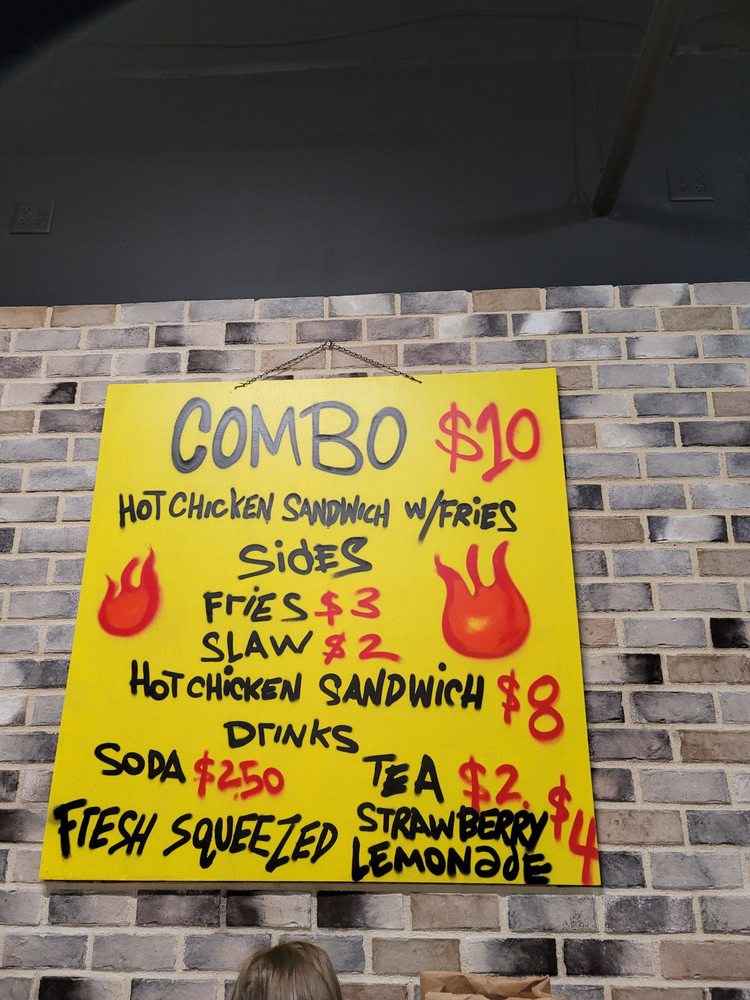 COMBO $10
HOT CHICKEN SANDWICH W/FRIES
SIDES
FRIES $3
SLAW $2
HOT CHICKEN SANDWICH $8
DRINKS
SODA $2.50
TEA $2.
FRESH SQUEEZED STRAWBERRY LEMONADE $4